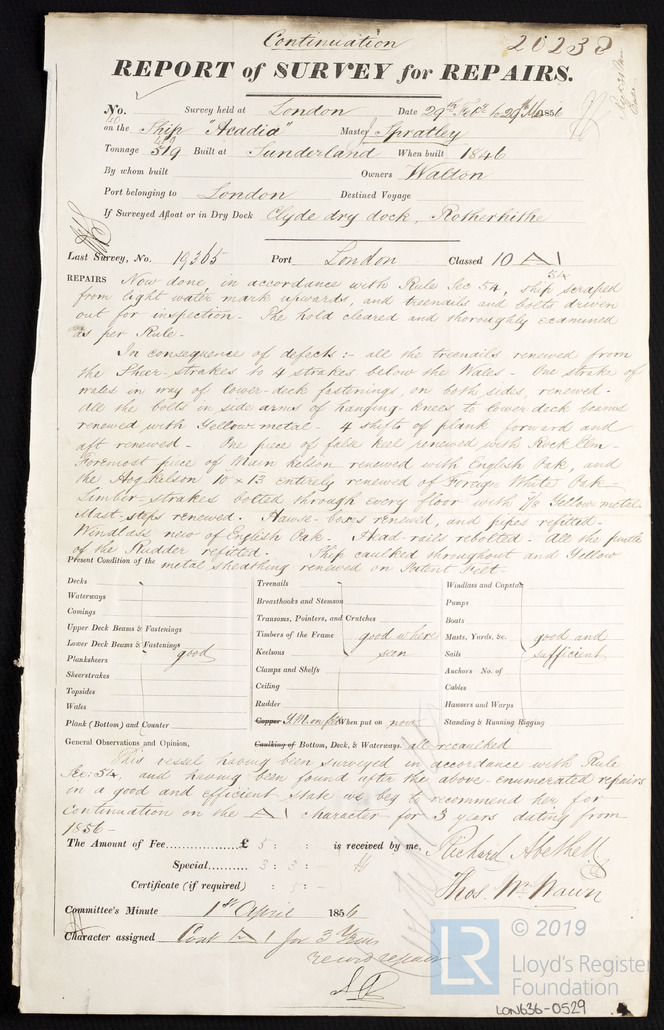 Continuation
20238
REPORT of SURVEY for REPAIRS.
No. Survey held at London Date 29th Feby to 29th Mar 1856
on the Ship "Acadia" Master J Spratley
Tonnage 519 Built at Sunderland When built 1846
By whom built Owners Walton
Port belonging to London Destined Voyage
If Surveyed Afloat or in Dry Dock Clyde dry dock, Rotherhithe
Last Survey, No. 19365 Port London Classed 10 A1
54
REPAIRS Now done, in accordance with Rule Sec 54, ship scraped
from light water mark upwards, and treenails and bolts driven
out for inspection - The hold cleared and thoroughly examined
as per Rule -
In consequence of defects :- all the treenails renewed from
the Sheer-strakes to 4 strakes below the Wales - One strake of
wales in way of lower-deck fastenings, on both sides, renewed -
All the bolts in side arms of hanging-knees to lower deck beams
renewed with Yellow metal - 4 shifts of plank forward and
aft renewed - One piece of false keel renewed with Rock Elm -
Foremost piece of Main kelson renewed with English Oak, and
the Hog kelson 10 x 13 entirely renewed of Foreign White Oak -
Limber-strakes bolted through every floor with 7/8 Yellow metal -
Mast-steps renewed - Hawse-boxes renewed, and pipes refitted -
Windlass new of English Oak - Head rails rebolted - All the pintles
of the Rudder refitted - Ship caulked throughout and Yellow
metal sheathing renewed on Patent Felt -
Present Condition of the
Decks
Waterways
Comings
Upper Deck Beams & Fastenings
Lower Deck Beams & Fastenings
Planksheers good
Sheerstrakes
Topsides
Wales
Plank (Bottom) and Counter
Treenails
Breasthooks and Stemson
Transoms, Pointers, and Crutches
Timbers of the Frame good where
Keelsons seen
Clamps and Shelfs
Ceiling
Rudder
Copper Y.M. on felt When put on now
Caulking of Bottom, Deck, & Waterways all recaulked
Windlass and Capstan
Pumps
Boats
Masts, Yards, &c. good and
Sails sufficient
Anchors No. of
Cables
Hawsers and Warps
Standing & Running Rigging
General Observations and Opinion,
This vessel having been surveyed in accordance with Rule
Sec: 54, and having been found after the above-enumerated repairs
in a good and efficient state we beg to recommend her for
Continuation on the A1 character for 3 years dating from
1856 -
The Amount of Fee £ 5 : : is received by me,
Special 3 : 3 :
Certificate (if required) : 5 : -
Richard Abethell
Thos. Wm Wawn
Committee's Minute 1st April 1856
Character assigned Cont A1 for 3 Years
record repair
© 2019
LR
Lloyd's Register
Foundation
LON636-0529